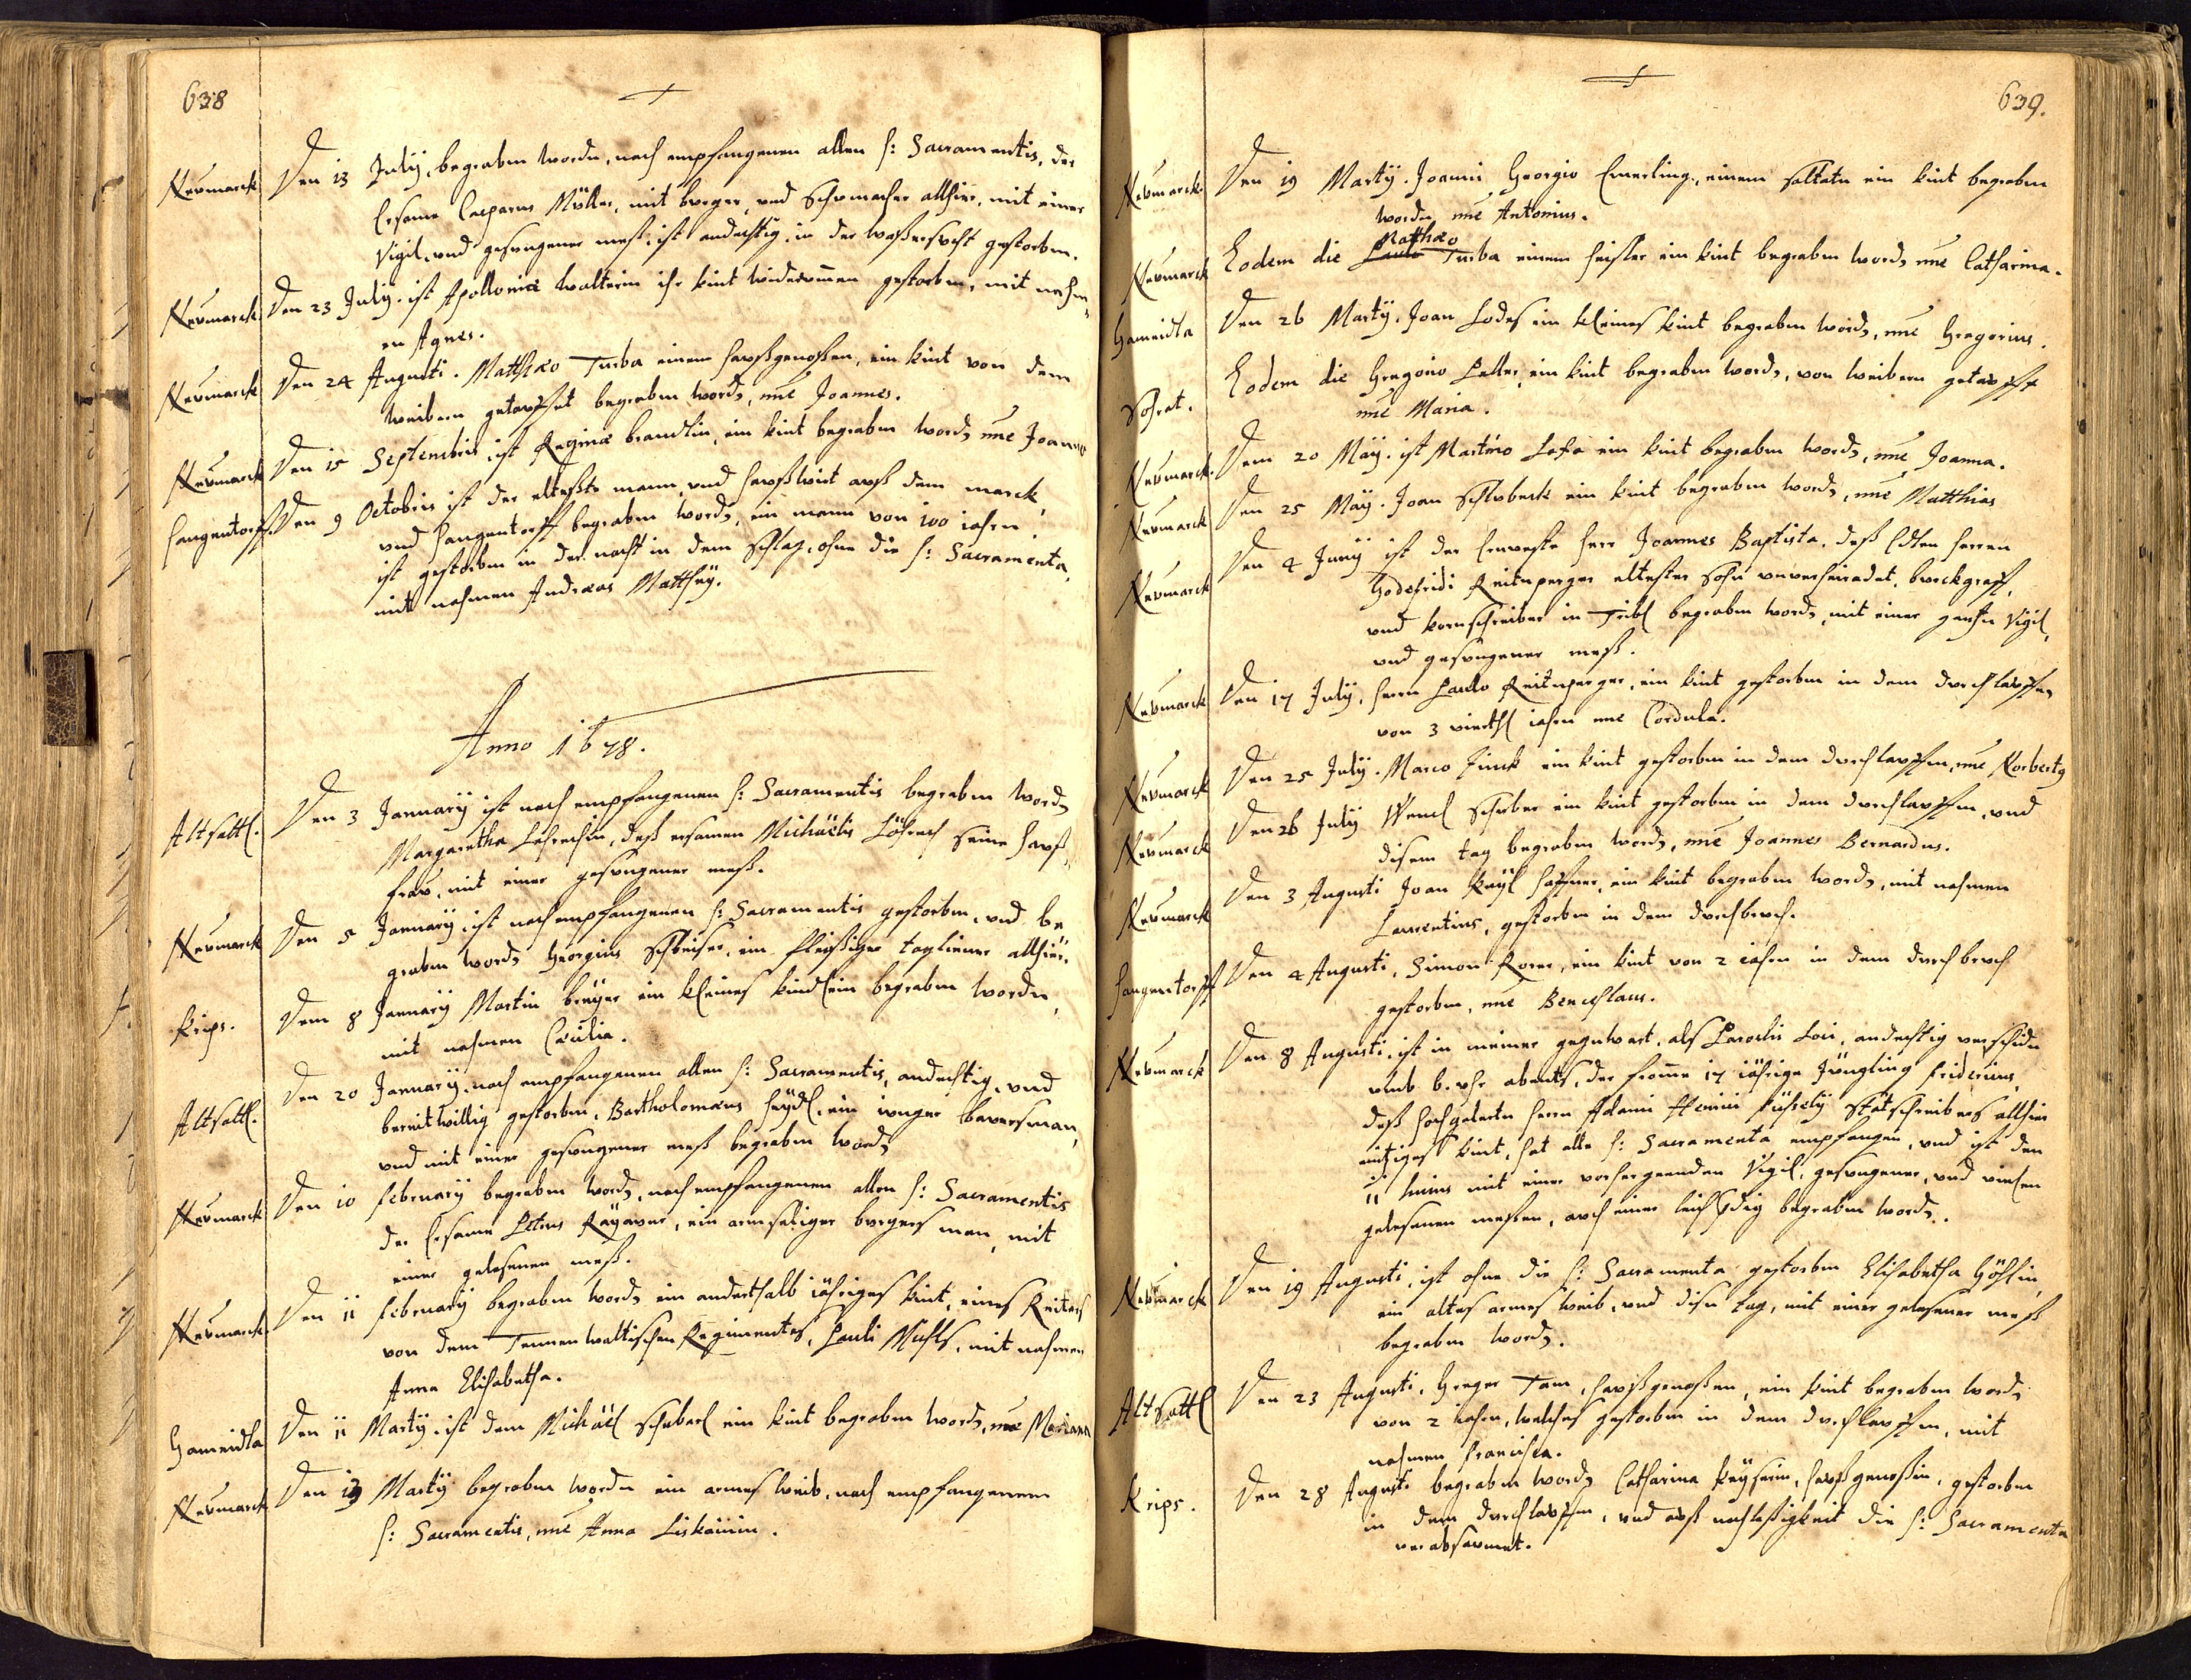 638
Neumarck Den 13 July, begraben worden, nach empfangenen allen h: Sacramentis, der
Ersame Casparus Müller, mit burger, und schumacher allhier, mit einer
Vigil, und gesungener meß, ist andechtig, in der waßersucht gestorben.
Neumarck Den 23 July. ist Apolloniæ walterin ihr kint widerumen gestorben, mit nahm,
en Agnes.
Neumarck Den 24 Augusti. Matthæo Turba einem haußgenoßen, ein kint von dem
weibern getauffet begraben word, nne Joannes.
Neumarck Den 15 Septembris, ist Reginæ brandlin, ein kint begraben word, nne Joannes
hangentorff. Den 9 Octobris ist der elteste mann, und haußwirt auß dem marck,
und hangentorff begraben word, ein mann von 100 iahren,
ist gestorben in der nacht in dem schlag, ohne die h: Sacramenta,
mit nahmen Andreas Matthey.
Anno 1678.
Altsattl. Den 3 January ist nach empfangenen h: Sacramentis begraben word,
Margaretha Löhrerhin, deß ersamen Michaëlis Löhrerh seine hauß,
frau, mit einer gesungener meß.
Neumarck Den 5 January, ist nach empfangenen h: Sacramentis gestorben, und be
graben word, Georgius Schleiser, ein fleißiger tagliener allhier.
Krips. Dem 8 January Martin breyer ein kleines kindlein begraben worden,
mit nahmen Cæcilia.
Altsatl. Den 20 January, nach empfangenen allen h: Sacramentis, andechtig, und
bereitwillig gestorben, Bartholomæus heydl, ein iunger bauersman,
und mit einer gesungener meß begraben word,
Neumarck Den 10 February begraben word, nach empfangenen allen h: Sacramentis
der Ersame Petrus Raÿauer, ein armseliger burgers man, mit
einer gelesenen meß.
Neumarck. Den 11 February begraben word, ein anderthalb iähriges kint, eines Reiters
von dem Tennenwaltischen Regimentes, Pauli Muhls, mit nahmen
Anna Elisabetha.
Hameidla Den 11 Marty, ist dem Michäel schuberl ein kint begraben word, nne Mariana
Neumarck Den 13 Marty begraben worden ein armes weib, nach empfangenem
h: Sacramentis, nne Anna Liskäuin.
639.
Neumarck. Den 19 Marty. Joanni Georgio Emerling, einem soltaten ein kint begraben
worden nne Antonius.
Matthæo
Neumarck Eodem die Turba einem heisler ein kint begraben word, nne Catharina.
Hameidla Den 26 Marty. Joan Lodes ein kleines kint begraben word, nne Gregorius.
Schrat. Eodem die Gregorio Peller, ein kint begraben word, von weibern getaufft
nne Maria.
Neumarck. Dem 20 Maÿ. ist Martino Lesa ein kint begraben word, nne Joanna.
Neumarck Den 25 Maÿ. Joan Schlubeck ein kint begraben word, nne Matthias
Neumarck Den 4 Juny ist der Ernveste herr Joannes Baptista, deß Edlen herren
Godefridi Reitnperger eltester sohn unverheiradet, burckgraff,
und kornschreiber in Tribl begraben word, mit einer gantzn Vigil,
und gesungener meß.
Neumarck Den 17 July, herrn Paulo Reitnperger, ein kint gestorben in dem durchlauffen,
von 3 viertl iahren nne Cordula.
Neumarck Den 25 July. Marco Finck ein kint gestorben in dem durchlauffen, nne Norbertg
Neumarck Den 26 July Wencl Schuber ein kint gestorben in dem durchlauffen, und
disem tag begraben word, nne Joannes Bernardus.
Neumarck Den 3 Augusti Joan Keÿl haffner, ein kint begraben word, mit nahmen
Laurentius, gestorben in dem durchbruch.
hangentorff Den 4 Augusti, Simon Korer, ein kint von 2 iahren in dem durchbruch
gestorben, nne Benceslaus.
Neumarck Den 8 Augusti, ist in meiner gegenwart, als Parochi loci, andechtig verschiden
umb 6. uhr abents, der fromme 17 iährige Jüngling Fridericus,
deß hochgelerten herrn Adami Henrici Füsselij Statschreibers allhier
eintziges kint, hat alle h: Sacramenta empfangen, und ist den
11 huius mit einer vorhergeenden Vigil, gesungener, und vielen
gelesenen meßen, auch einer leichpredig begraben word.
Neumarck Den 19 Augusti, ist ohne die h: Sacramenta gestorben Elisabetha Höslin,
ein altes armes weib, und disn tag, mit einer gelesener meß
begraben word.
Alt Sattl Den 23 Augusti, Greger Tam, haußgenoßen, ein kint begraben word,
von 2 iahren, welches gestorben in dem durchlauffen, mit
nahmen Francisca.
Krips. Den 28 Augusti begraben word, Catharina Keÿserin, haußgenoßin, gestorben
in dem durchlauffen, und auß nachleßigkeit die h: Sacramenta
verabsaumet.